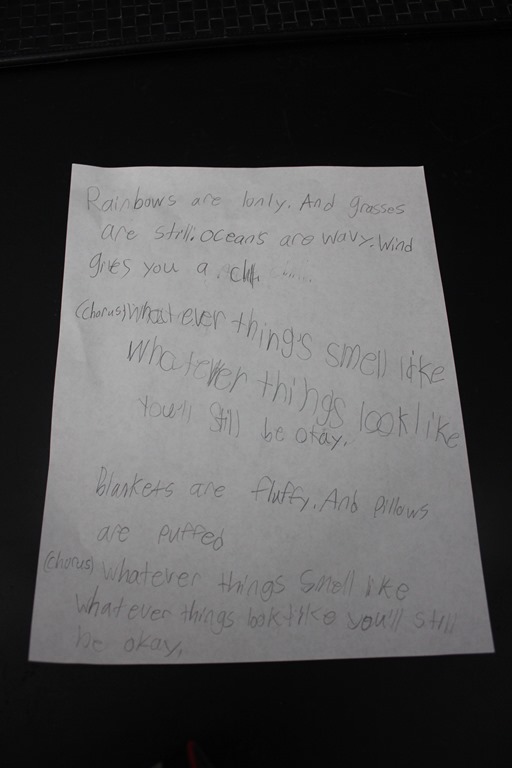 Rainbows are lonly. And grasses
are still. oceans are wavy. Wind
gives you a chill.
(chorus) Whatever things smell like
Whatever things look like
You'll still be okay.
Blankets are fluffy. And pillows
are puffed
(chorus) Whatever things smell like
whatever things look like you'll still
be okay.